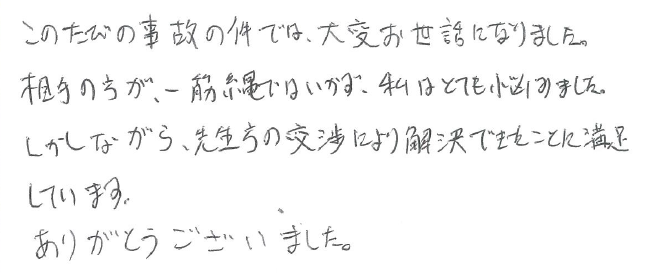 このたびの事故の件では、大変お世話になりました。
相手の方が、一筋縄ではいかず、私はとても悩みました。
しかしながら、先生方の交渉により解決できたことに満足
しています。
ありがとうございました。